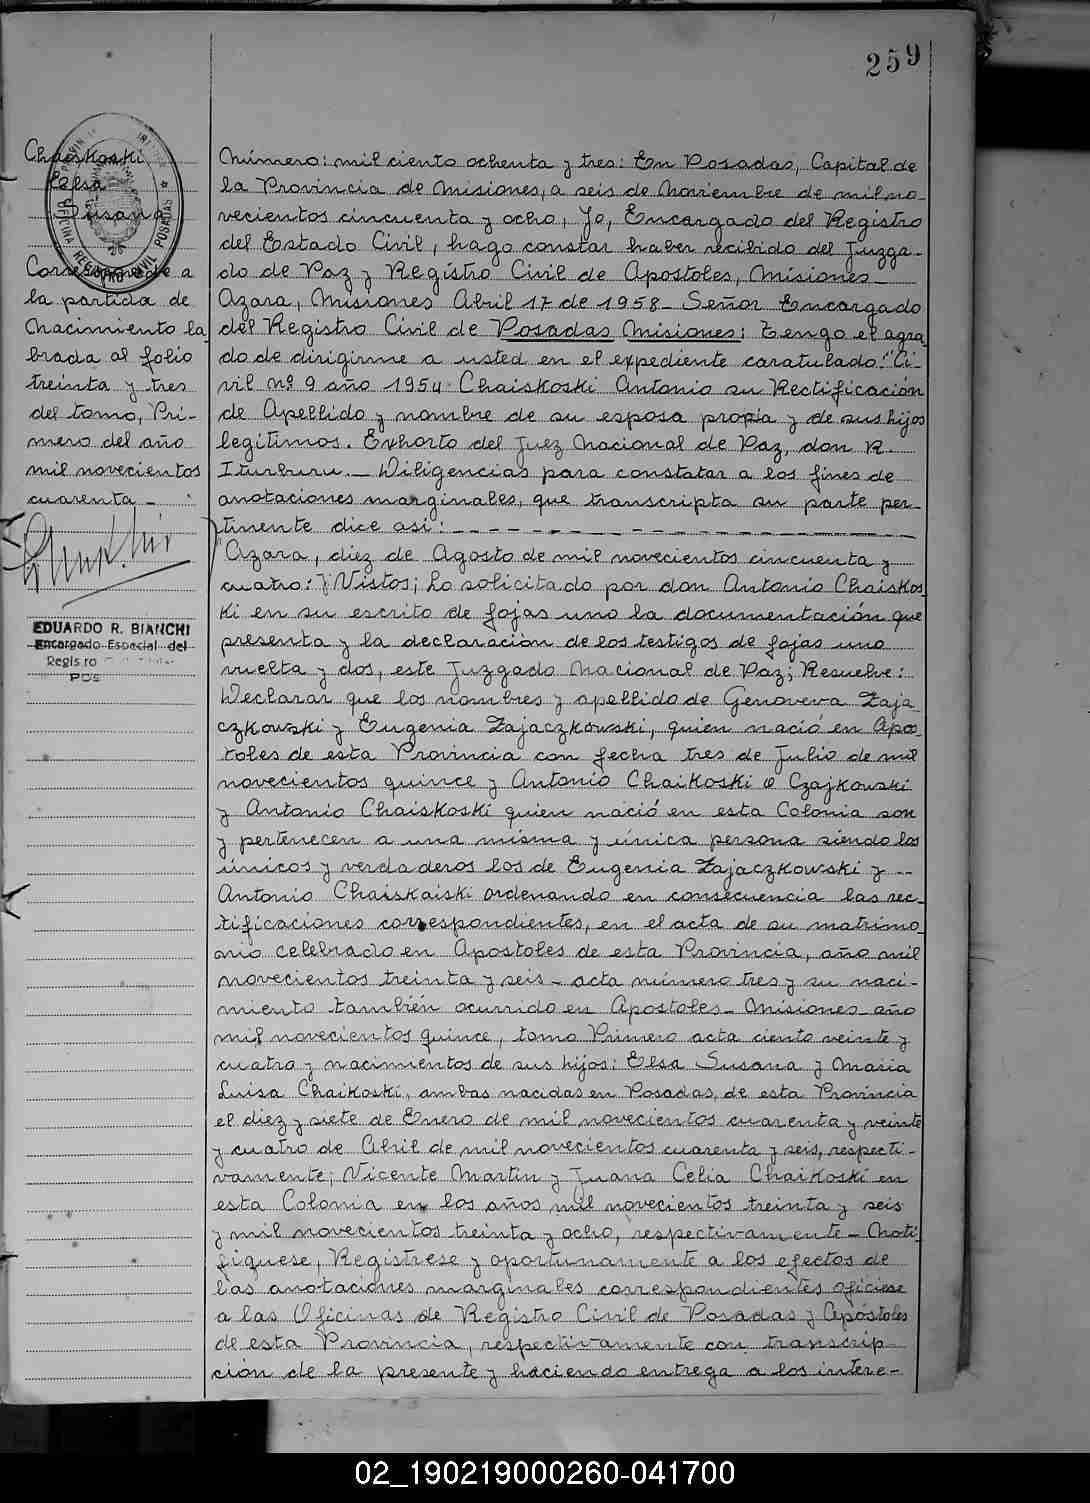 259
Chaiskoski
Elsa
Susana
Corresponde a
la partida de
Nacimiento la
brada al folio
treinta y tres
del tomo, Pri-
mero del año
mil novecientos
cuarenta -
EDUARDO R. BIANCHI
Encargado Especial del
Registro
POS
REGISTRO CIVIL POSADAS
Número: mil ciento ochenta y tres: En Posadas, Capital de
la Provincia de Misiones, a seis de Noviembre de mil no-
vecientos cincuenta y ocho, Yo, Encargado del Registro
del Estado Civil, hago constar haber recibido del Juzga-
do de Paz y Registro Civil de Apostoles, Misiones -
Azara, Misiones Abril 17 de 1958 - Señor Encargado
del Registro Civil de Posadas Misiones: Tengo el agra-
do de dirigirme a usted en el expediente caratulado: "Ci-
vil nº 9 año 1954 Chaiskoski Antonio su Rectificación
de Apellido y nombre de su esposa propia y de sus hijos
legítimos. Exhorto del Juez Nacional de Paz, don R.
Iturburu. - Diligencias para constatar a los fines de
anotaciones marginales, que transcripta su parte per-
tinente dice así: - - - - - - - - - - - -
"Azara, diez de Agosto de mil novecientos cincuenta y
cuatro: Y Vistos; Lo solicitado por don Antonio Chaiskos
ki en su escrito de fojas uno la documentación que
presenta y la declaración de los testigos de fojas uno
vuelta y dos, este Juzgado Nacional de Paz; Resuelve:
Declarar que los nombres y apellido de Genoveva Zaja
czkowski y Eugenia Zajaczkowski, quien nació en Apos-
toles de esta Provincia con fecha tres de Julio de mil
novecientos quince y Antonio Chaikoski o Czajkowski
y Antonio Chaiskoski quien nació en esta Colonia son
y pertenecen a una misma y única persona siendo los
únicos y verdaderos los de Eugenia Zajaczkowski y --
Antonio Chaiskaiski ordenando en consecuencia las rec-
tificaciones correspondientes, en el acta de su matrimo-
nio celebrado en Apostoles de esta Provincia, año mil
novecientos treinta y seis - acta número tres y su naci-
miento también ocurrido en Apostoles - Misiones - año
mil novecientos quince, tomo Primero acta ciento veinte y
cuatro y nacimientos de sus hijos: Elsa Susana y Maria
Luisa Chaikoski, ambas nacidas en Posadas, de esta Provincia
el diez y siete de Enero de mil novecientos cuarenta y veinte
y cuatro de Abril de mil novecientos cuarenta y seis, respecti-
vamente; Vicente Martin y Juana Celia Chaikoski en
esta Colonia en los años mil novecientos treinta y seis
y mil novecientos treinta y ocho, respectivamente - Noti-
fiquese, Registrese y oportunamente a los efectos de
las anotaciones marginales correspondientes ofíciese
a las Oficinas de Registro Civil de Posadas y Apóstoles
de esta Provincia, respectivamente con transcrip-
ción de la presente y haciendo entrega a los intere-
02_190219000260-041700